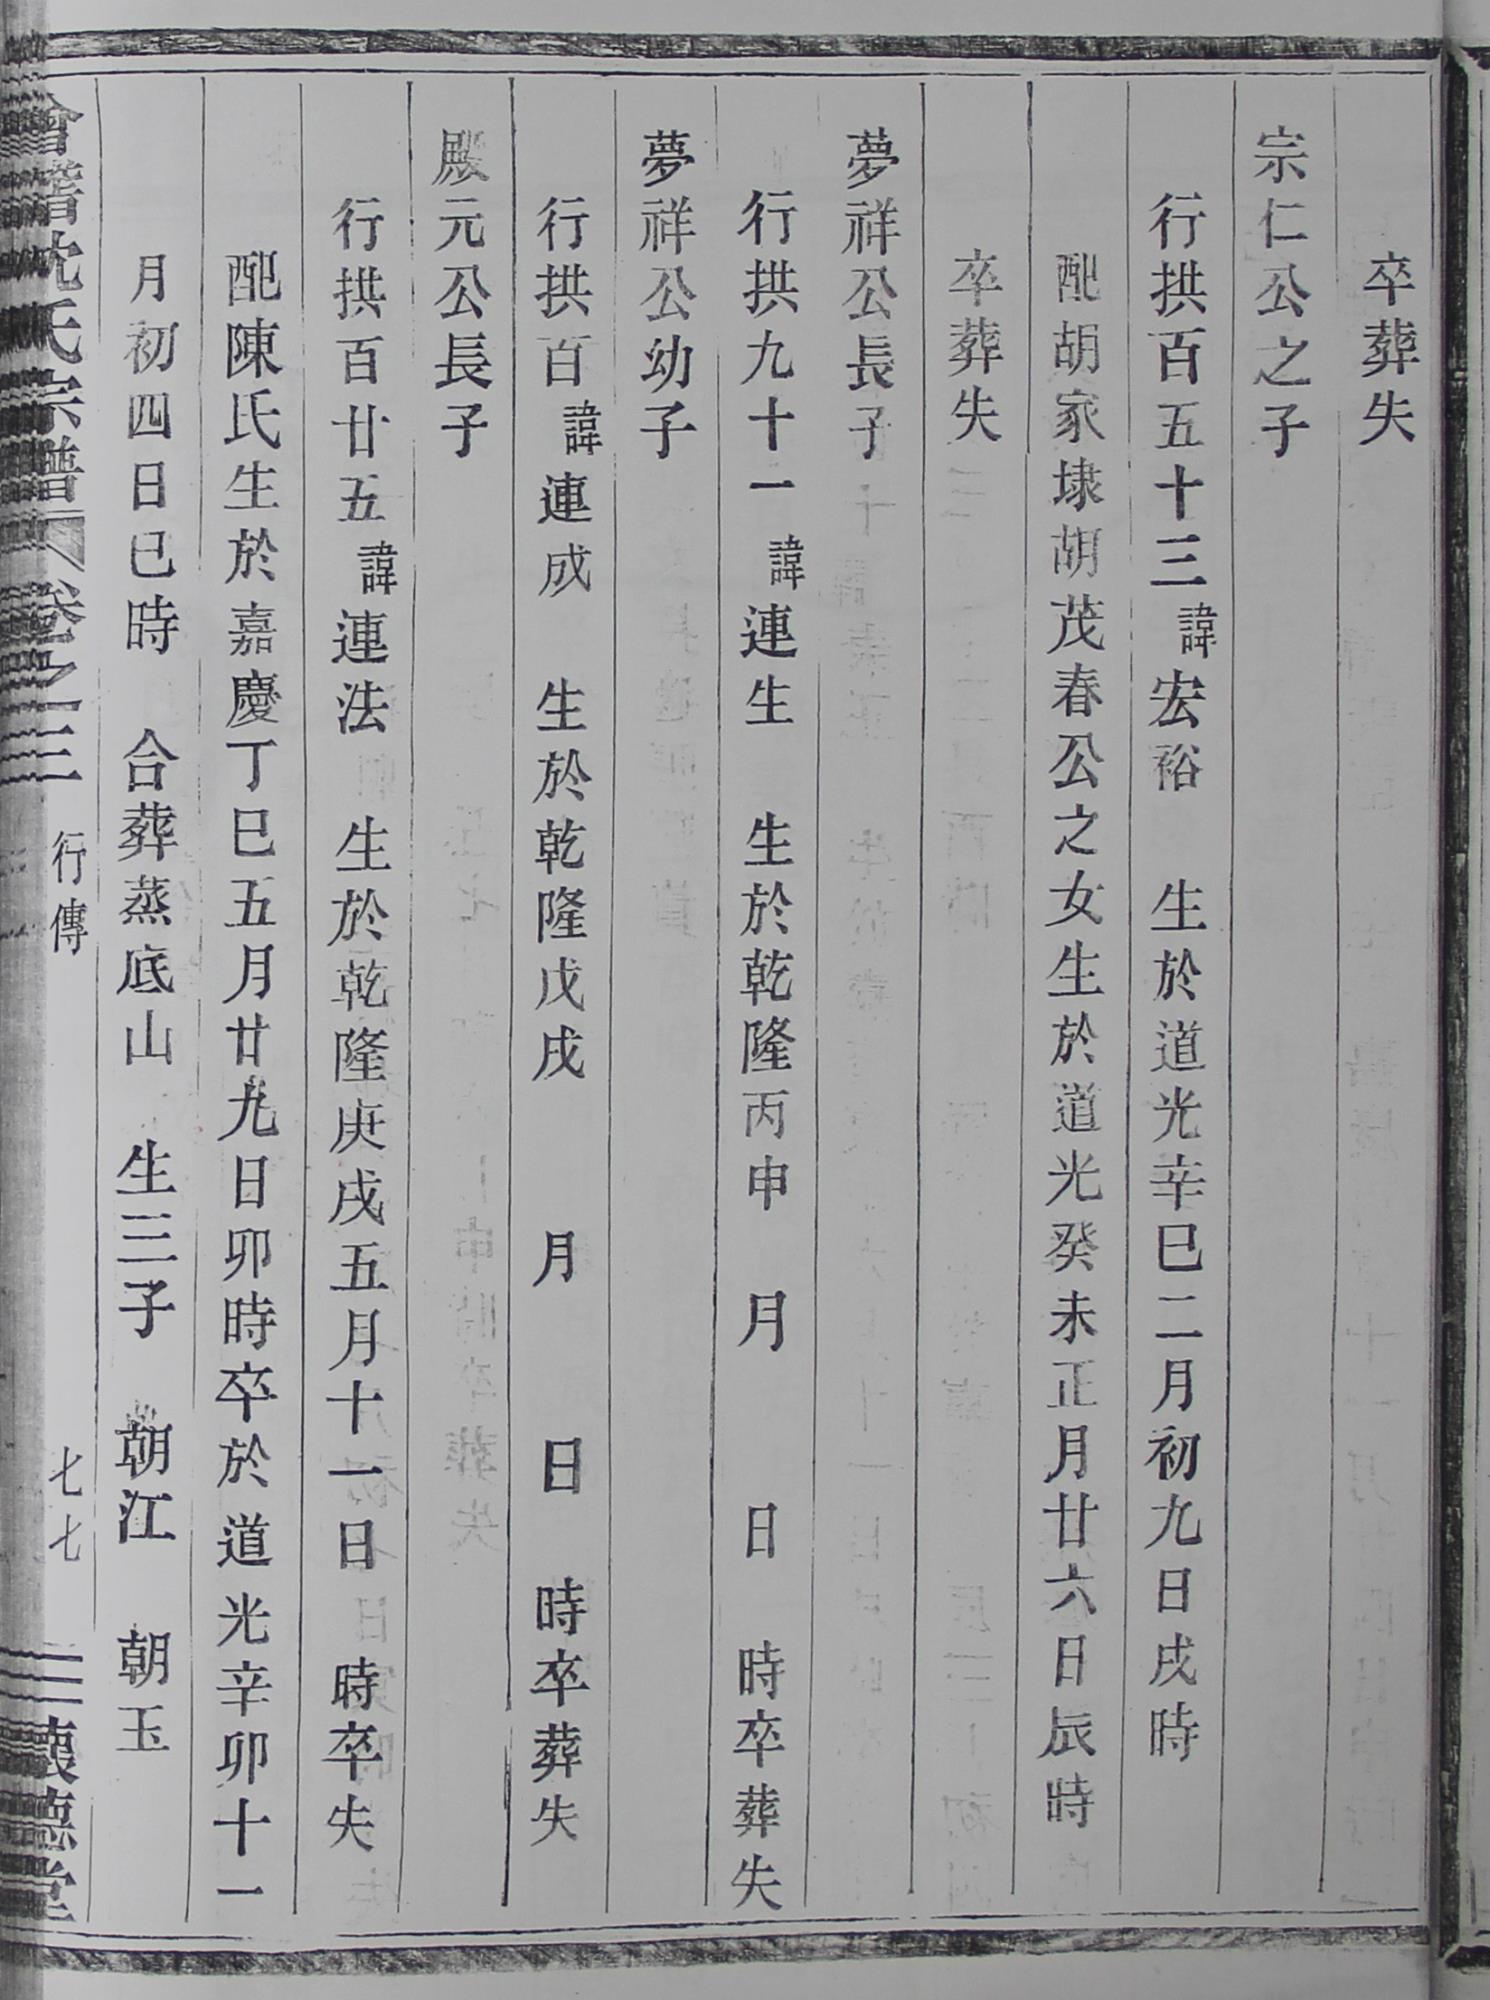 卒葬失
宗仁公之子
行拱百五十三諱宏裕 生於道光辛巳二月初九日戌時
配胡家埭胡茂春公之女生於道光癸未正月廿六日辰時
卒葬失
夢祥公長子
行拱九十一諱連生 生於乾隆丙申 月 日 時卒葬失
夢祥公幼子
行拱百諱連成 生於乾隆戊戌 月 日 時卒葬失
殿元公長子
行拱百廿五諱連法 生於乾隆庚戌五月十一日 時卒失
配陳氏生於嘉慶丁巳五月廿九日卯時卒於道光辛卯十一
月初四日巳時 合葬蒸底山 生三子 朝江 朝玉
會稽沈氏宗譜 卷之三 行傳 七七 懷德堂